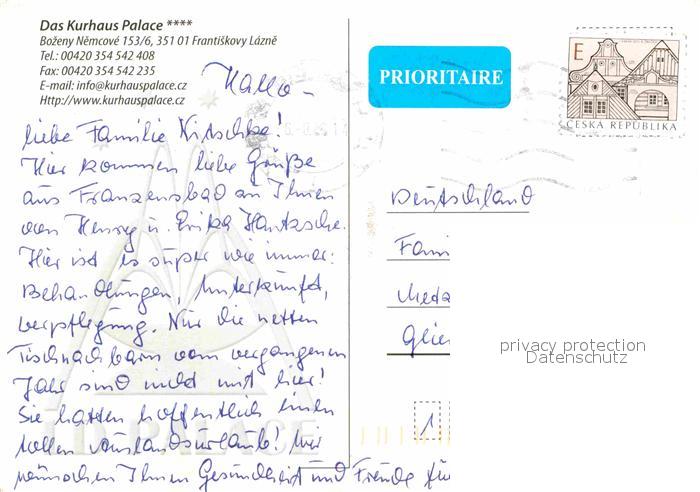 Das Kurhaus Palace ****
Boženy Němcové 153/6, 351 01 Františkovy Lázně
Tel.: 00420 354 542 408
Fax: 00420 354 542 235
E-mail: info@kurhauspalace.cz
Http://www.kurhauspalace.cz
Hallo –
liebe Familie Nitschke!
Hier kommen liebe Grüße
aus Franzensbad an Ihnen
von Henry u. Erika Hantzsche.
Hier ist es super wie immer:
Behandlungen, Unterkunft,
Verpflegung. Nur die netten
Tischnachbarn vom vergangenen
Jahr sind nicht mit hier!
Sie hatten hoffentlich einen
tollen Auslandsurlaub! Wir
wünschen Ihnen Gesundheit und Freude für
PRIORITAIRE
E
ČESKÁ REPUBLIKA
Deutschland
Fami
Meda
Glie
1
privacy protection
Datenschutz
LD PALACE